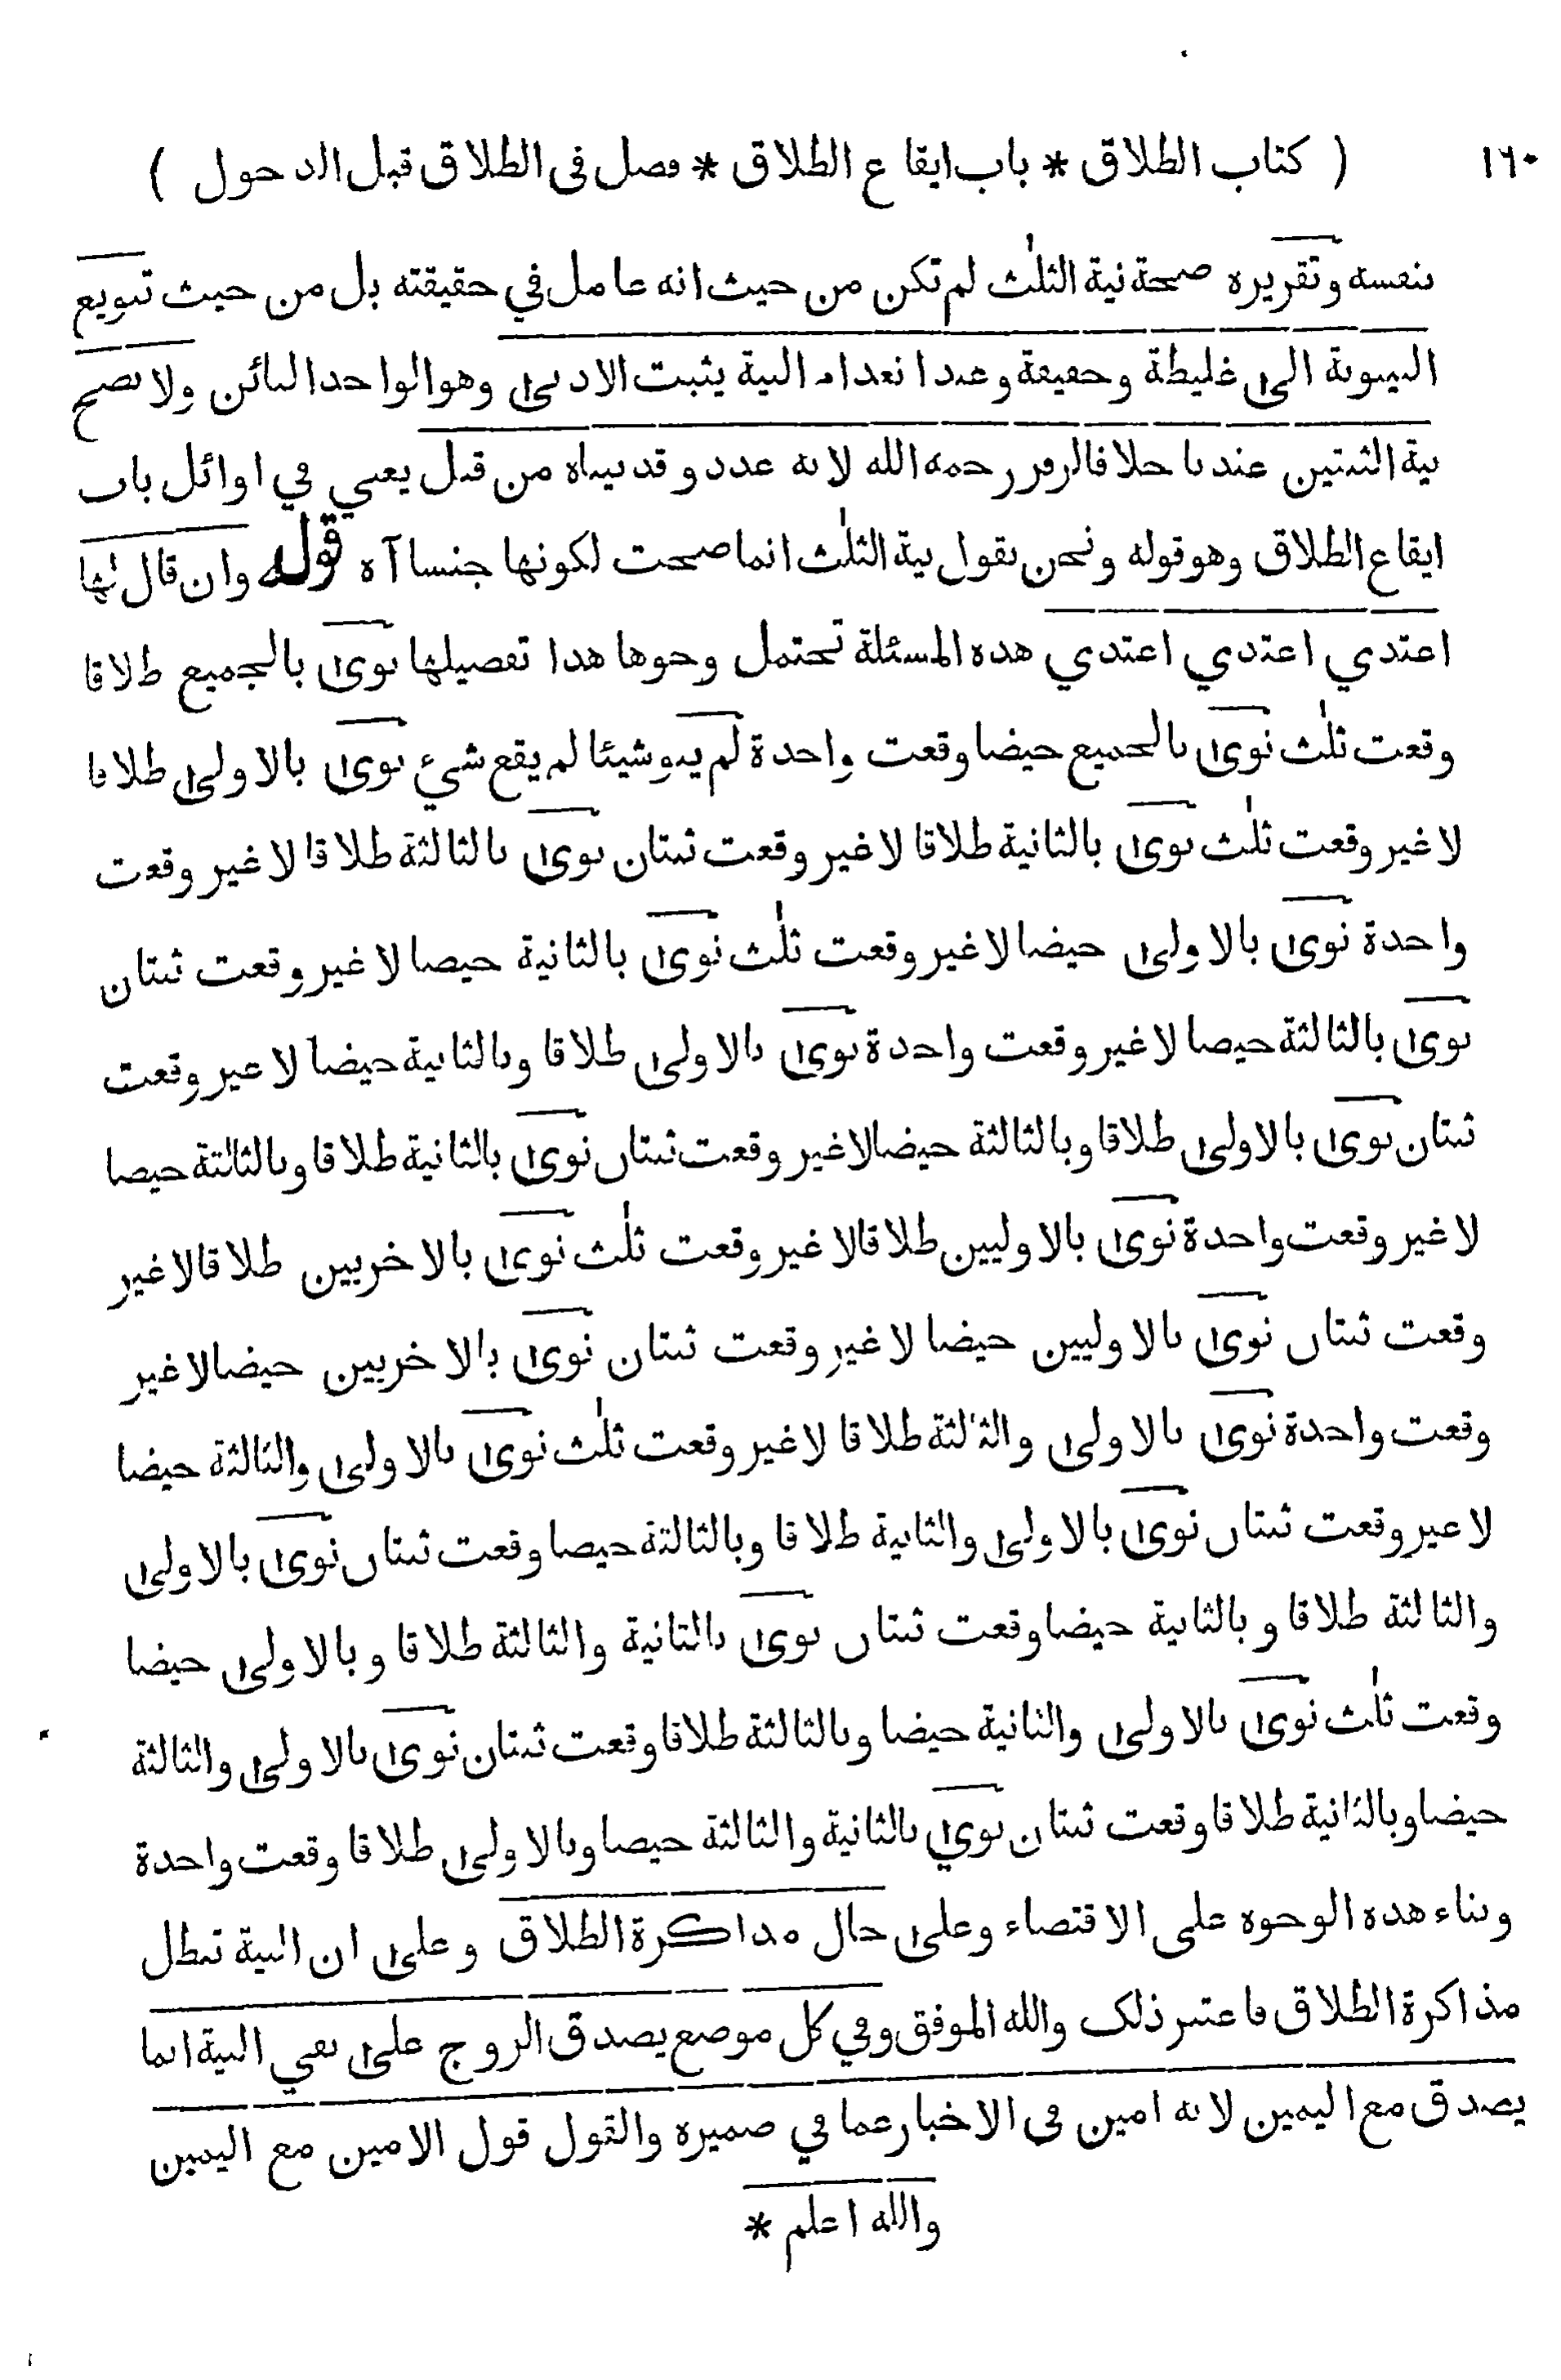 ١٦٠ ( كتاب الطلاق * باب ايقاع الطلاق * فصل في الطلاق قبل الدخول )
بنفسه وتقريره صحة نية الثلٰث لم تكن من حيث انه عامل في حقيقته بل من حيث تنويع
البينونة الى غليظة وخفيفة وعند انعدام النية يثبت الادنى وهو الواحد البائن ولا تصح
نية الثنتين عندنا خلافا لزفر رحمه الله لانه عدد وقد بيناه من قبل يعني في اوائل باب
ايقاع الطلاق وهو قوله ونحن نقول نية الثلٰث انما صحت لكونها جنسا آه قوله وان قال لها
اعتدي اعتدي اعتدي هذه المسئلة تحتمل وجوها هذا تفصيلها نوى بالجميع طلاقا
وقعت ثلٰث نوى بالجميع حيضا وقعت واحدة لم ينو شيئا لم يقع شيء نوى بالاولى طلاقا
لا غير وقعت ثلٰث نوى بالثانية طلاقا لا غير وقعت ثنتان نوى بالثالثة طلاقا لا غير وقعت
واحدة نوى بالاولى حيضا لا غير وقعت ثلٰث نوى بالثانية حيضا لا غير وقعت ثنتان
نوى بالثالثة حيضا لا غير وقعت واحدة نوى بالاولى طلاقا وبالثانية حيضا لا غير وقعت
ثنتان نوى بالاولى طلاقا وبالثالثة حيضا لا غير وقعت ثنتان نوى بالثانية طلاقا وبالثالثة حيضا
لا غير وقعت واحدة نوى بالاوليين طلاقا لا غير وقعت ثلٰث نوى بالاخريين طلاقا لا غير
وقعت ثنتان نوى بالاوليين حيضا لا غير وقعت ثنتان نوى بالاخريين حيضا لا غير
وقعت واحدة نوى بالاولى والثالثة طلاقا لا غير وقعت ثلٰث نوى بالاولى والثالثة حيضا
لا غير وقعت ثنتان نوى بالاولى والثانية طلاقا وبالثالثة حيضا وقعت ثنتان نوى بالاولى
والثالثة طلاقا وبالثانية حيضا وقعت ثنتان نوى بالثانية والثالثة طلاقا وبالاولى حيضا
وقعت ثلٰث نوى بالاولى والثانية حيضا وبالثالثة طلاقا وقعت ثنتان نوى بالاولى والثالثة
حيضا وبالثانية طلاقا وقعت ثنتان نوي بالثانية والثالثة حيضا وبالاولى طلاقا وقعت واحدة
وبناء هذه الوجوه على الاقتضاء وعلى حال مذاكرة الطلاق وعلى ان النية تبطل
مذاكرة الطلاق فاعتبر ذلك والله الموفق وفي كل موضع يصدق الزوج على نفي النية انما
يصدق مع اليمين لانه امين في الاخبار عما في ضميره والقول قول الامين مع اليمين
والله اعلم *